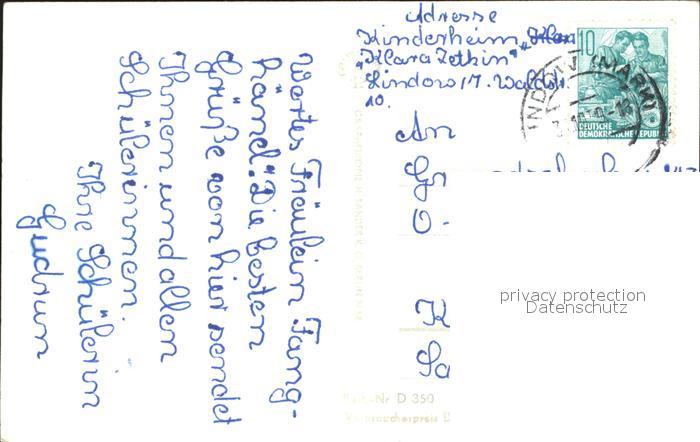 Adresse
Kinderheim
"Klara Zetkin"
Lindow/M. Waldstr.
10.
10
DEUTSCHE
DEMOKRATISCHE REPUBLIK
(MARK)
An
Gr
O.
K
Sa
Wertes Fräulein Fang-
händ! Die besten
Grüße von hier sendet
Ihnen und allen
Schülerinnen.
Ihre Schülerin
Gudrun
Best.-Nr D 350
Verbraucherpreis
privacy protection
Datenschutz